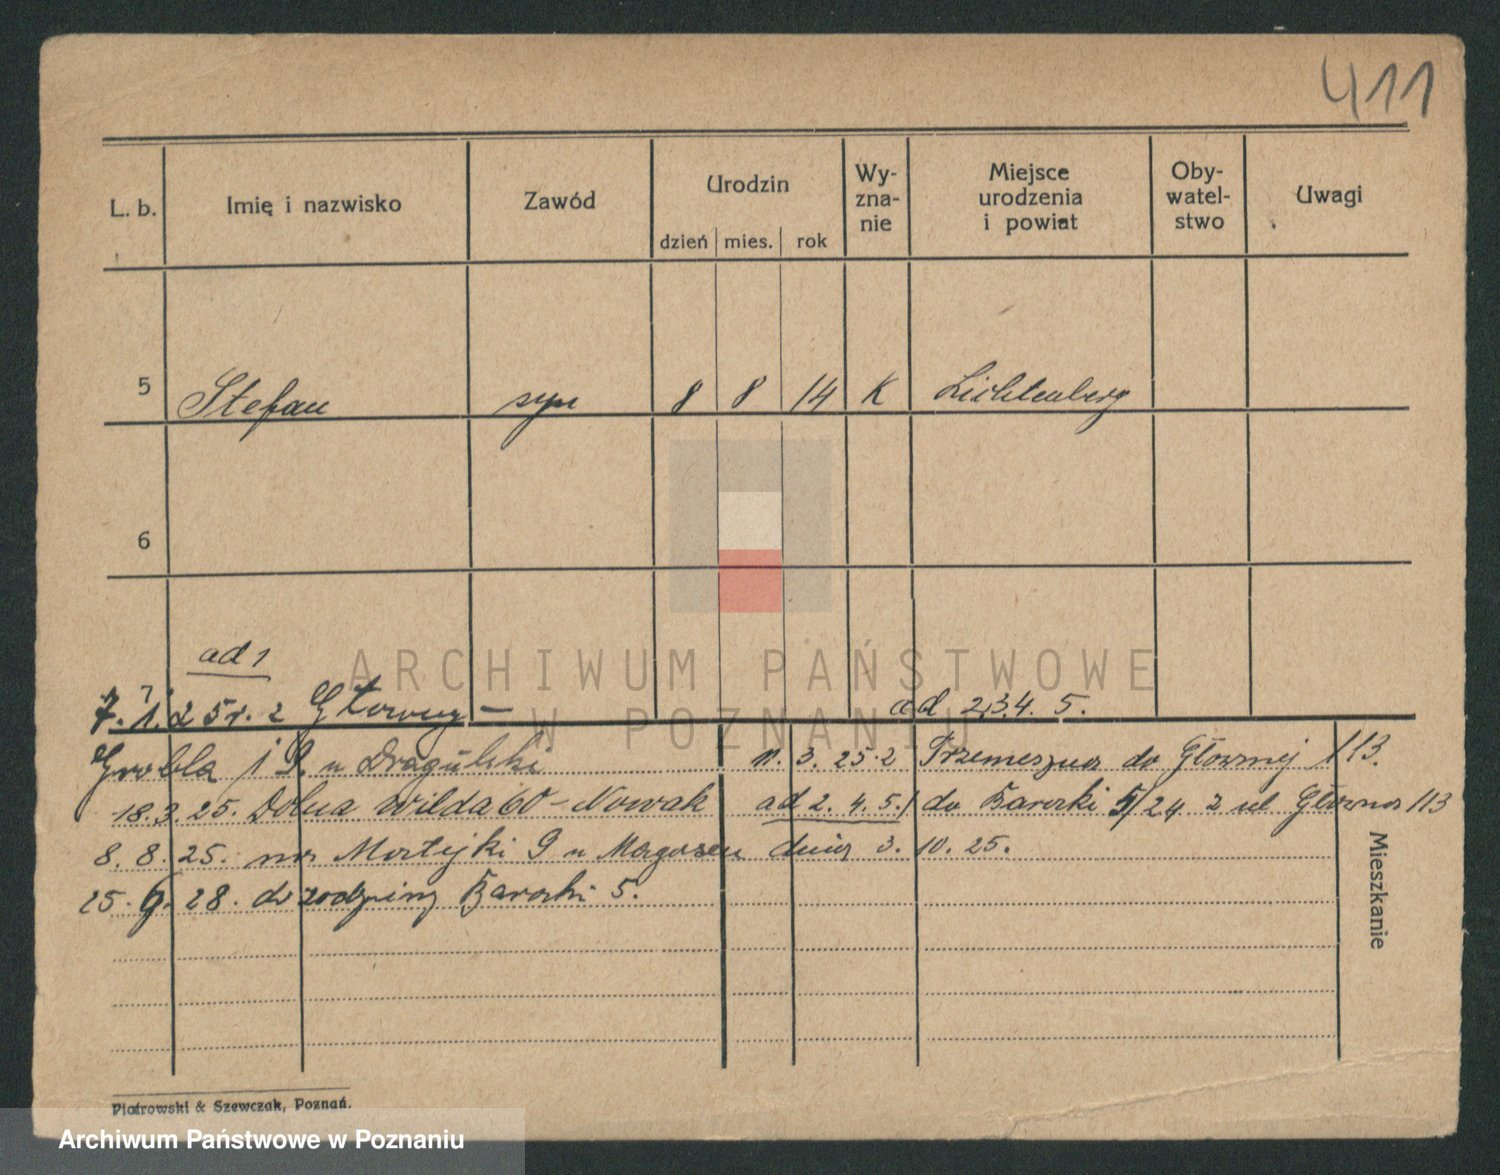 411
L. b. Imię i nazwisko Zawód Urodzin Wy-zna-nie Miejsce urodzenia i powiat Oby-watel-stwo Uwagi
dzień mies. rok
5 Stefan syn 8 8 14 K Lichtenberg
6
ad 1
ARCHIWUM PAŃSTWOWE
7. 1. 25 r. z Główny – ad 2.3.4. 5.
W POZNANIU
Grobla u Dragulski 11. 3. 25 z Przemeszna do Głównej 113.
18.3.25. Dolna Wilda 60 – Nowak ad 2. 4. 5. do Barocki 5/24 z ul Główna 113
8. 8. 25. na 9 u dnia 3. 10. 25.
25. 9. 28. do rodziny Barocki 5.
Mieszkanie
Piotrowski & Szewczak, Poznań.
Archiwum Państwowe w Poznaniu